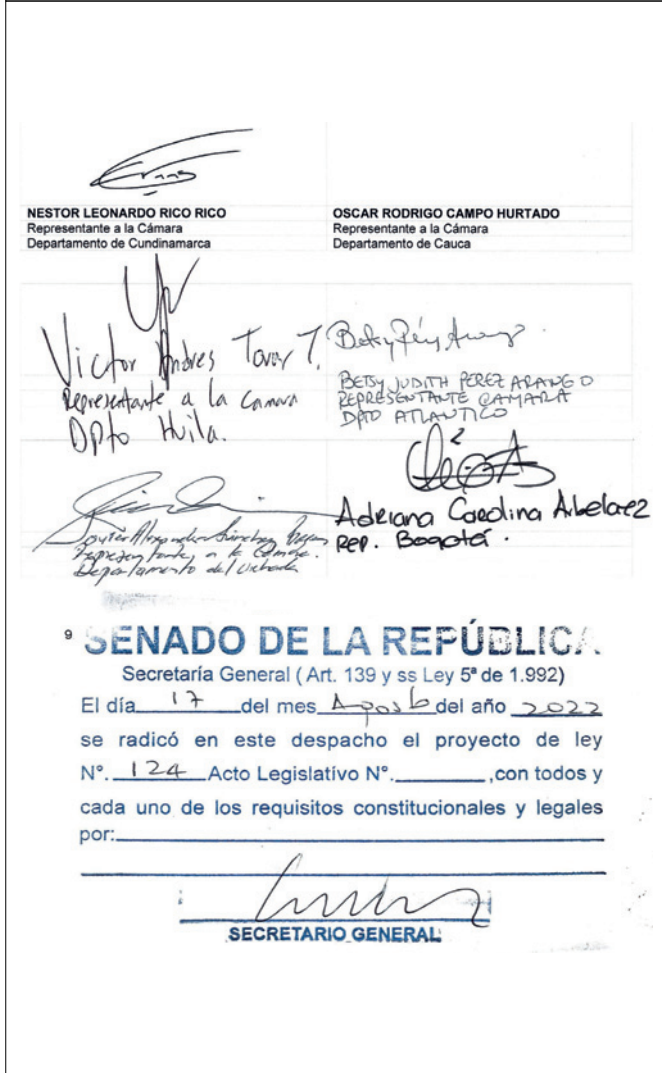 NESTOR LEONARDO RICO RICO
Representante a la Cámara
Departamento de Cundinamarca
OSCAR RODRIGO CAMPO HURTADO
Representante a la Cámara
Departamento de Cauca
Victor Andres Tovar T.
Representante a la Camara
Dpto Huila.
BETSY JUDITH PEREZ ARANGO
REPRESENTANTE CAMARA
DPTO ATLANTICO
Alexander Sánchez
Representante a la Cámara.
Departamento del Vichada
Adriana Carolina Arbelaez
REP. Bogotá.
9
SENADO DE LA REPÚBLICA
Secretaría General ( Art. 139 y ss Ley 5ª de 1.992)
El día 17 del mes Agosto del año 2022
se radicó en este despacho el proyecto de ley
N°. 124 Acto Legislativo N°. ,con todos y
cada uno de los requisitos constitucionales y legales
por:
SECRETARIO GENERAL